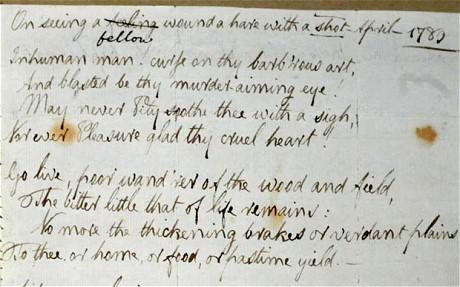 On seeing a feling wound a hare with a shot April 1789
fellow
Inhuman man! curse on thy barb'rous art,
And blasted be thy murder-aiming eye!
May never Pity soothe thee with a sigh,
Nor ever Pleasure glad thy cruel heart!
Go live, poor wand'rer of the wood and field,
The bitter little that of life remains:
No more the thickening brakes or verdant plains
To thee, or home, or food, or pastime yield. —